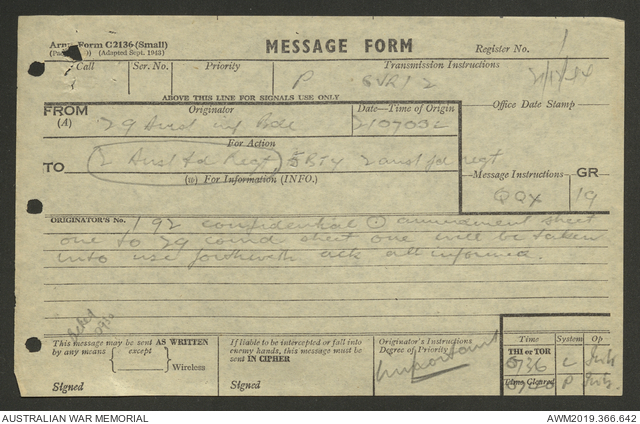 Army Form C2136 (Small)
(Adapted Sept. 1943)
MESSAGE FORM
Register No. 1
Call Ser. No. Priority Transmission Instructions
P
ABOVE THIS LINE FOR SIGNALS USE ONLY
Office Date Stamp
FROM
(A)
Originator
Date—Time of Origin
29 Aust inf Bde
210703Z
For Action
TO
2 Aust fd Regt 5 Bty 2 aust fd regt
(w) For Information (INFO.)
Message Instructions GR
QQX 19
ORIGINATOR'S No. 192 confidential amendment sheet
one to 29 comd sheet one will be taken
into use forthwith ack all informed.
acked
This message may be sent AS WRITTEN
by any means except
Wireless
Signed
If liable to be intercepted or fall into
enemy hands, this message must be
sent IN CIPHER
Signed
Originator's Instructions
Degree of Priority
Important
Time System Op
THI or TOR
0736 L
Time Cleared
P
AUSTRALIAN WAR MEMORIAL
AWM2019.366.642